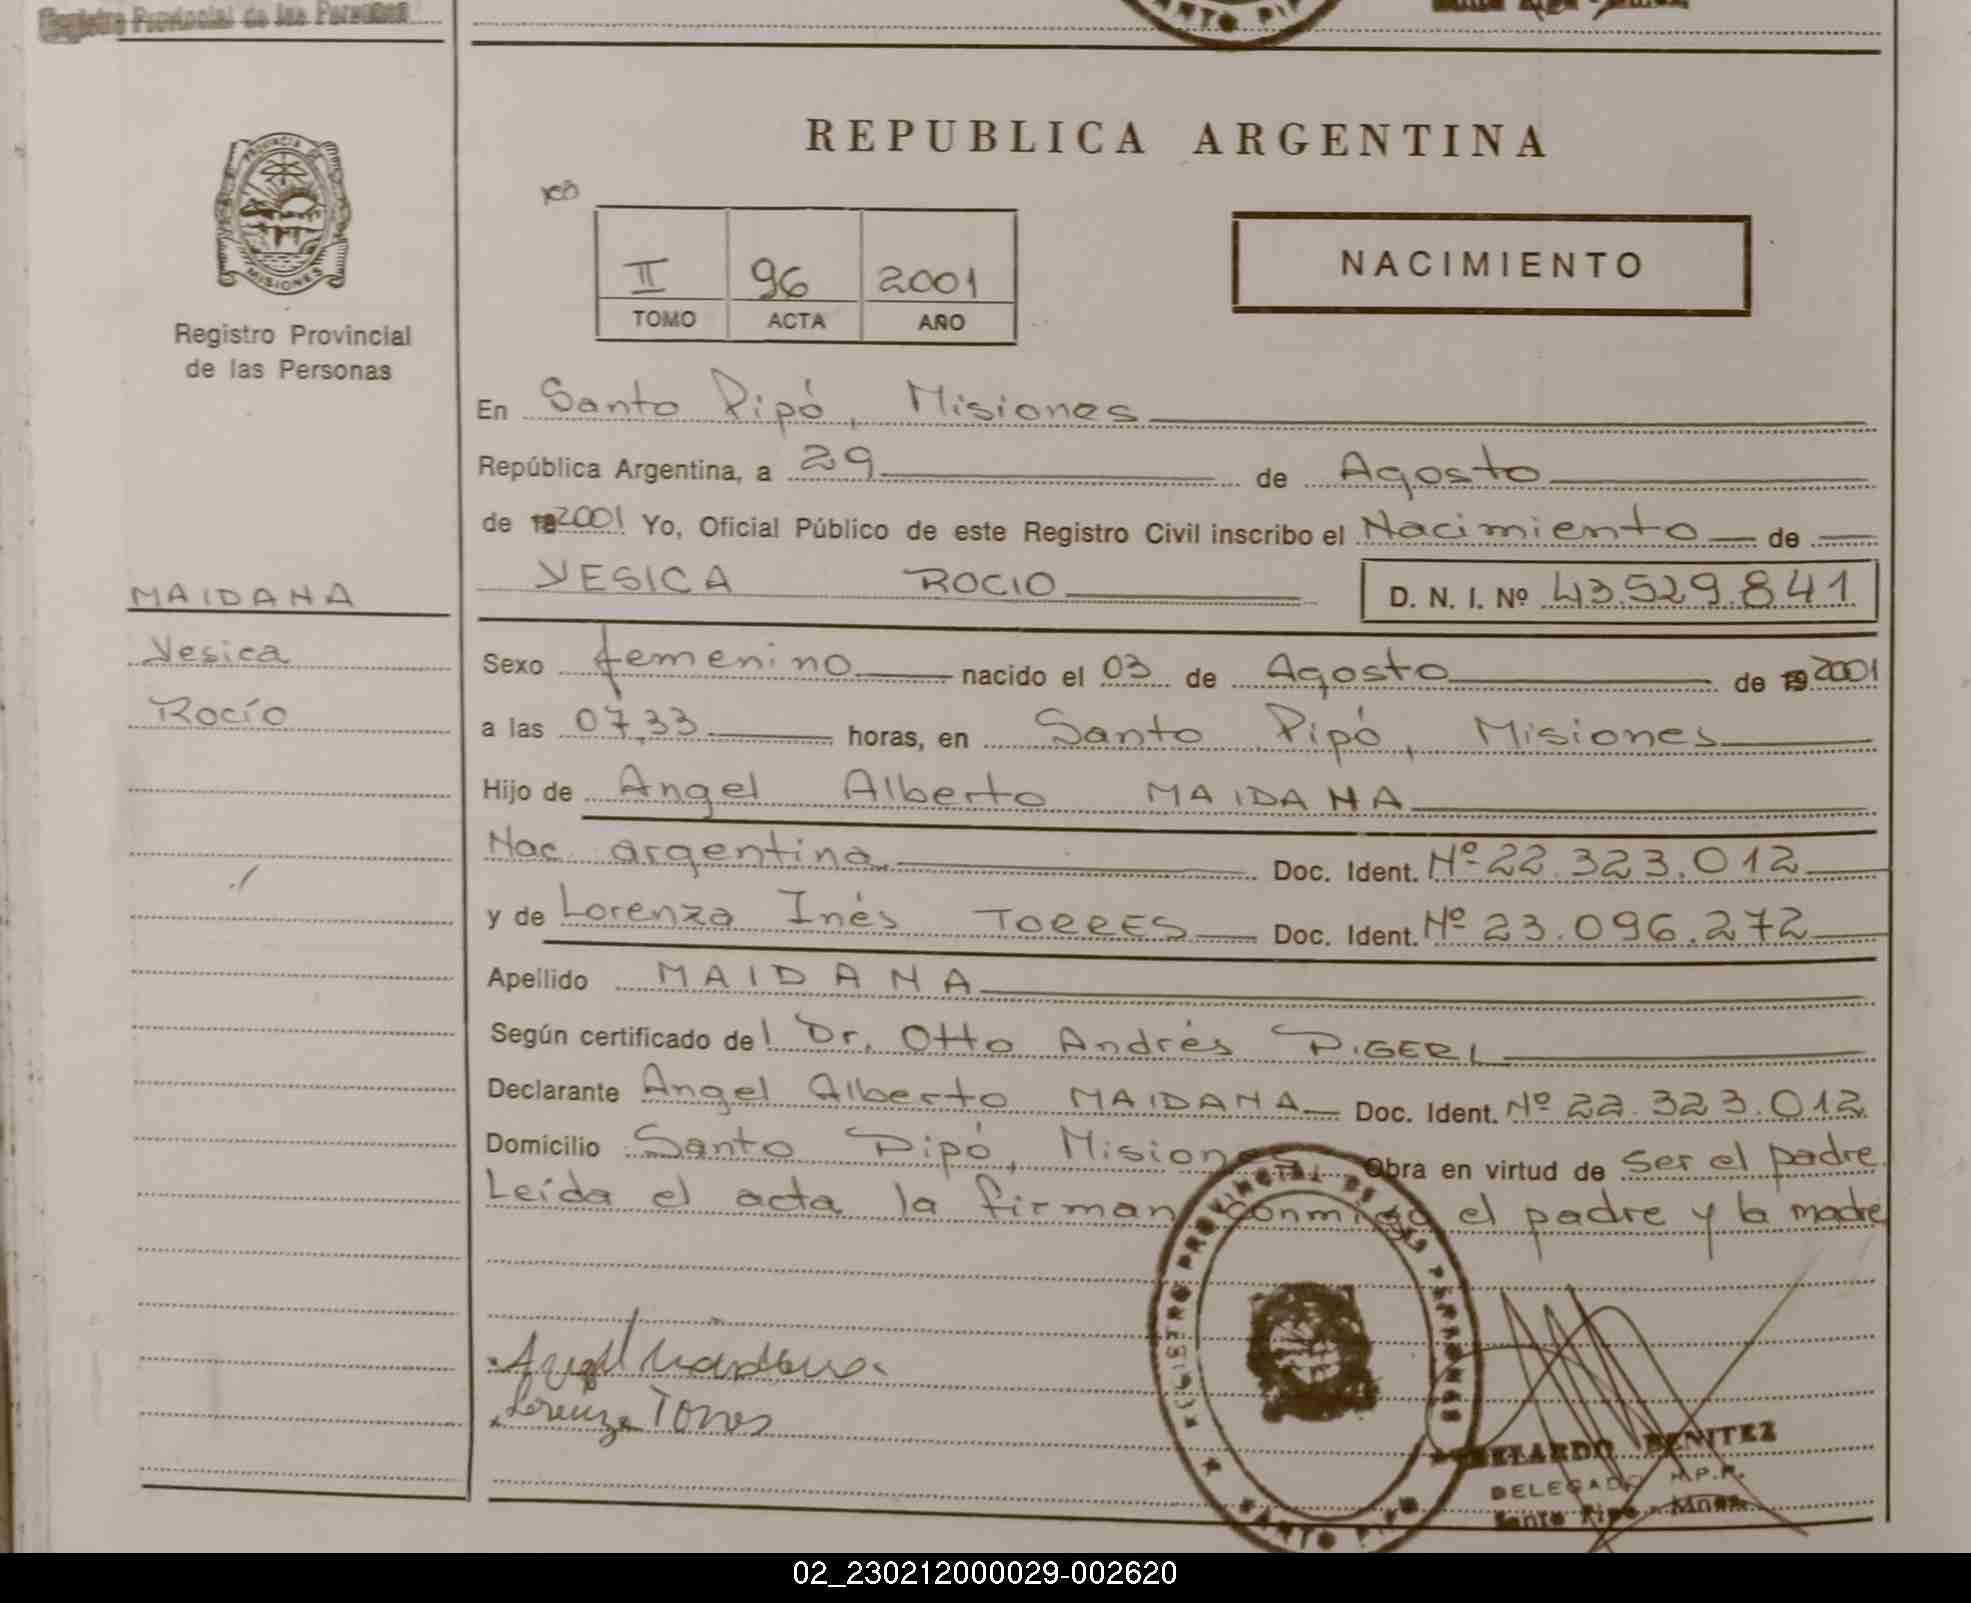 Registro Provincial de las Personas
SANTO PIPO
REPUBLICA ARGENTINA
PROVINCIA DE
MISIONES
Registro Provincial
de las Personas
II 96 2001
TOMO ACTA AÑO
NACIMIENTO
En Santo Pipó, Misiones
República Argentina, a 29 de Agosto
de 19 2001 Yo, Oficial Público de este Registro Civil inscribo el Nacimiento de
YESICA ROCIO D. N. I. Nº 43.529.841
MAIDANA
Yesica
Rocío
Sexo femenino nacido el 03 de Agosto de 19 2001
a las 07,33 horas, en Santo Pipó, Misiones
Hijo de Angel Alberto MAIDANA
Nac. argentina Doc. Ident. Nº 22.323.012
y de Lorenza Inés TORRES Doc. Ident. Nº 23.096.272
Apellido MAIDANA
Según certificado del Dr. Otto Andrés PIGERL
Declarante Angel Alberto MAIDANA Doc. Ident. Nº 22.323.012
Domicilio Santo Pipó, Misiones Obra en virtud de ser el padre.
Leída el acta la firman conmigo el padre y la madre
REGISTRO PROVINCIAL DE LAS PERSONAS
SANTO PIPO
Angel Maidana
Lorenza Torres
BENITEZ
DELEGADO R.P.P.
Santo Pipo - Mnes.
02_230212000029-002620